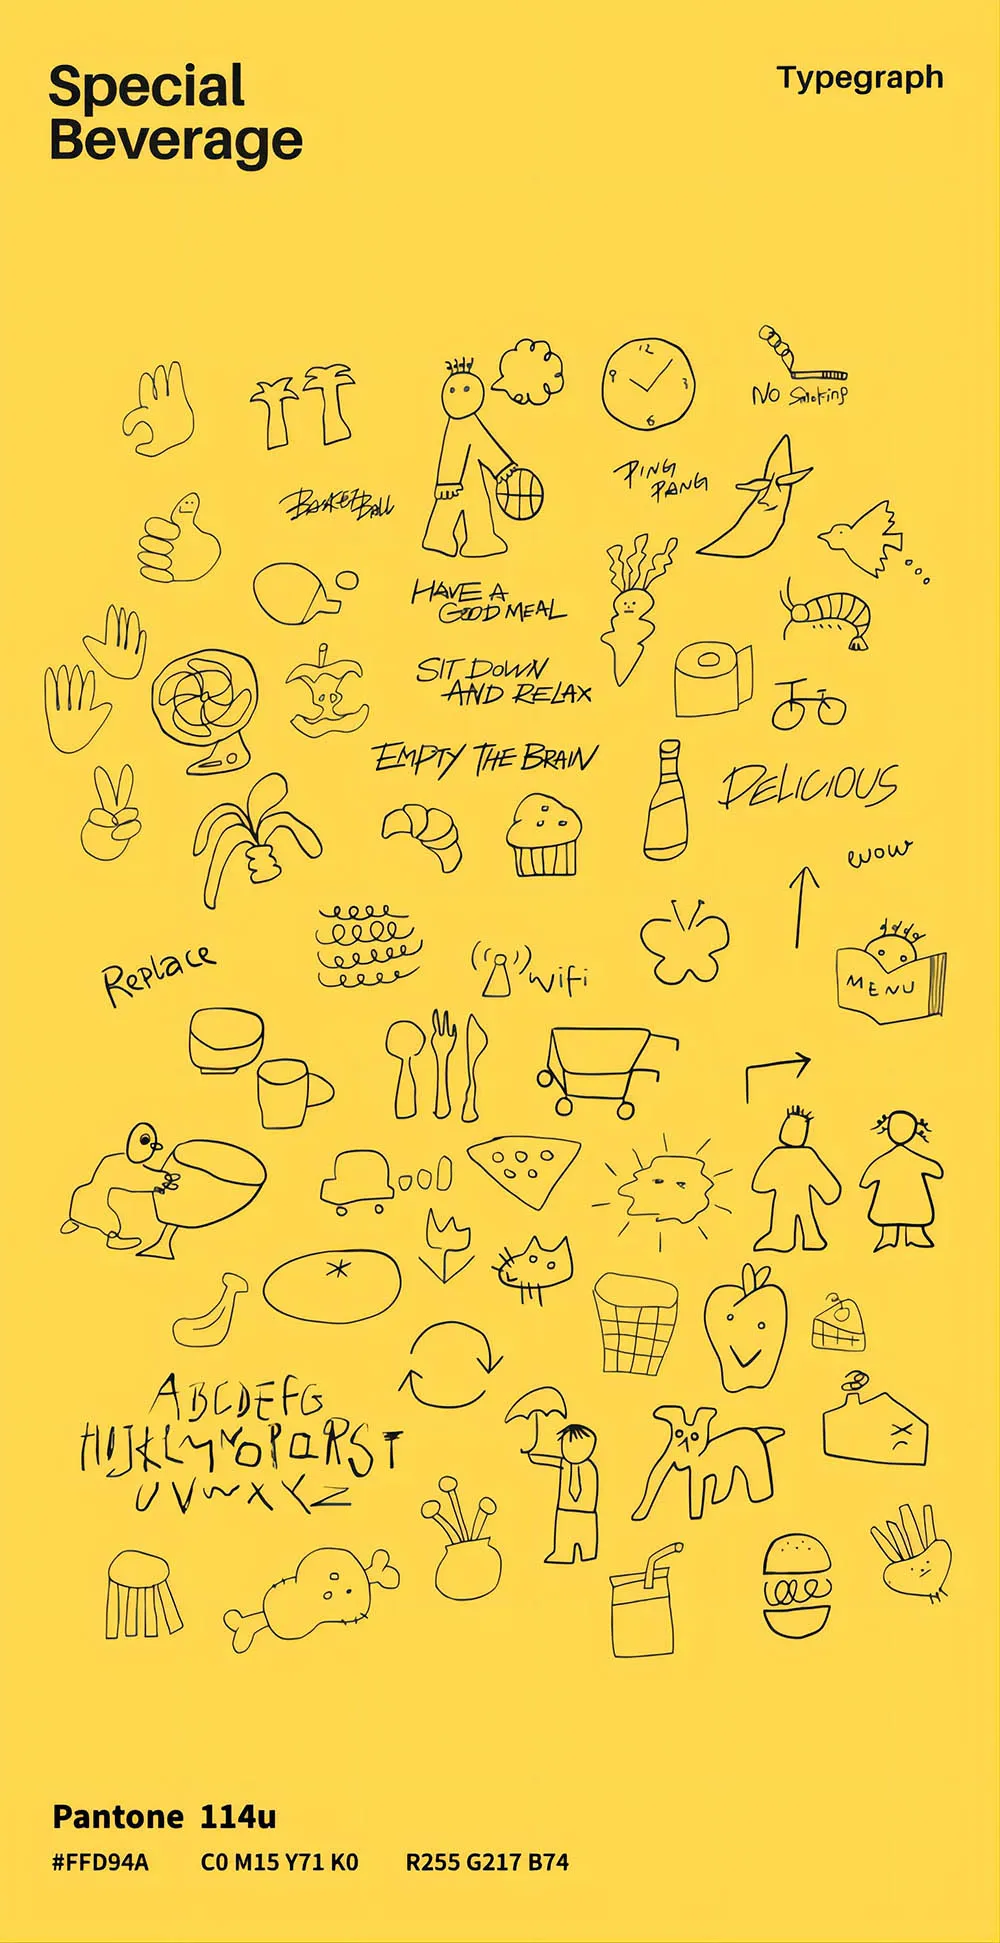 Special
Beverage
Typegraph
12
9
3
6
No Smoking
BASKETBALL
PING
PANG
HAVE A
GOOD MEAL
SIT DOWN
AND RELAX
EMPTY THE BRAIN
DELICIOUS
wow
Replace
wifi
MENU
ABCDEFG
HIJKLMNOPQRST
UVWXYZ
Pantone 114u
#FFD94A C0 M15 Y71 K0 R255 G217 B74